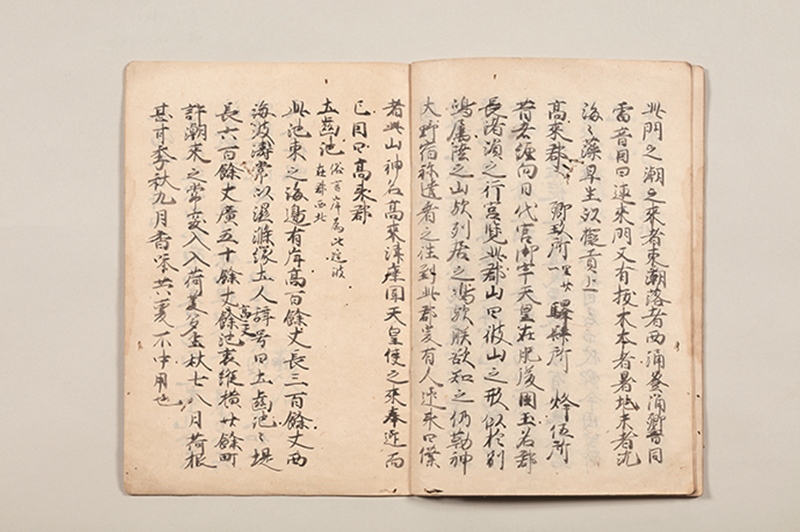 此門之潮之來者東潮落者西涌登涌響音同
雷音因曰速來門又有挍木本者著地末者沉
海〻藻早生以擬貢上
高來郡 郷玖所 里廿一 驛肆所 烽伍所
昔者纏向日代宮御宇天皇在肥後國玉名郡
長渚濱之行宮覽此郡山曰彼山之形似於別
嶋属陸之山歟列居之嶋歟朕欲知之仍勒神
大野宿祢遣看之往到此郡爰有人迎來曰僕
者此山神名高來津座聞天皇使之來奉迎而
已因曰高來郡
土齒池 俗言岸為比遲波 在郡西北
此池東之海邊有岸高百餘丈長三百餘丈西
海波濤常以濯滌緣土人辞号曰土齒池〻堤
長六百餘丈廣五十餘丈高二丈餘池裏縱横廿餘町
許潮來之常突入荷菱多生秋七八月荷根
甚甘季秋九月香味共変不中用也